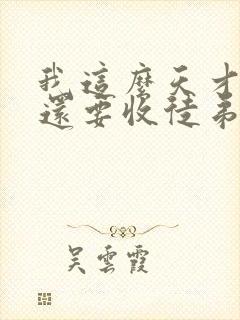 我這麼天才
還要收徒弟
吳雲霞